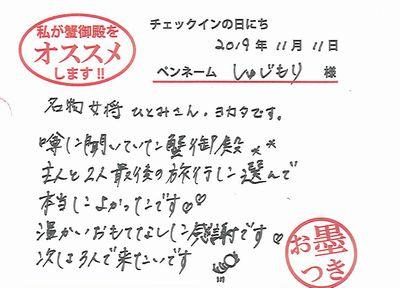 私が蟹御殿を
オススメ
します!!
チェックインの日にち
2019年 11月 11日
ペンネーム しゅじもり 様
名物女将 ひとみさん、ヨカタです。
噂に聞いていた蟹御殿**
主人と2人最後の旅行に選んで
本当によかったです♡♡
温かいおもてなしに感謝です♡
次は3人で来たいです
お墨
つき